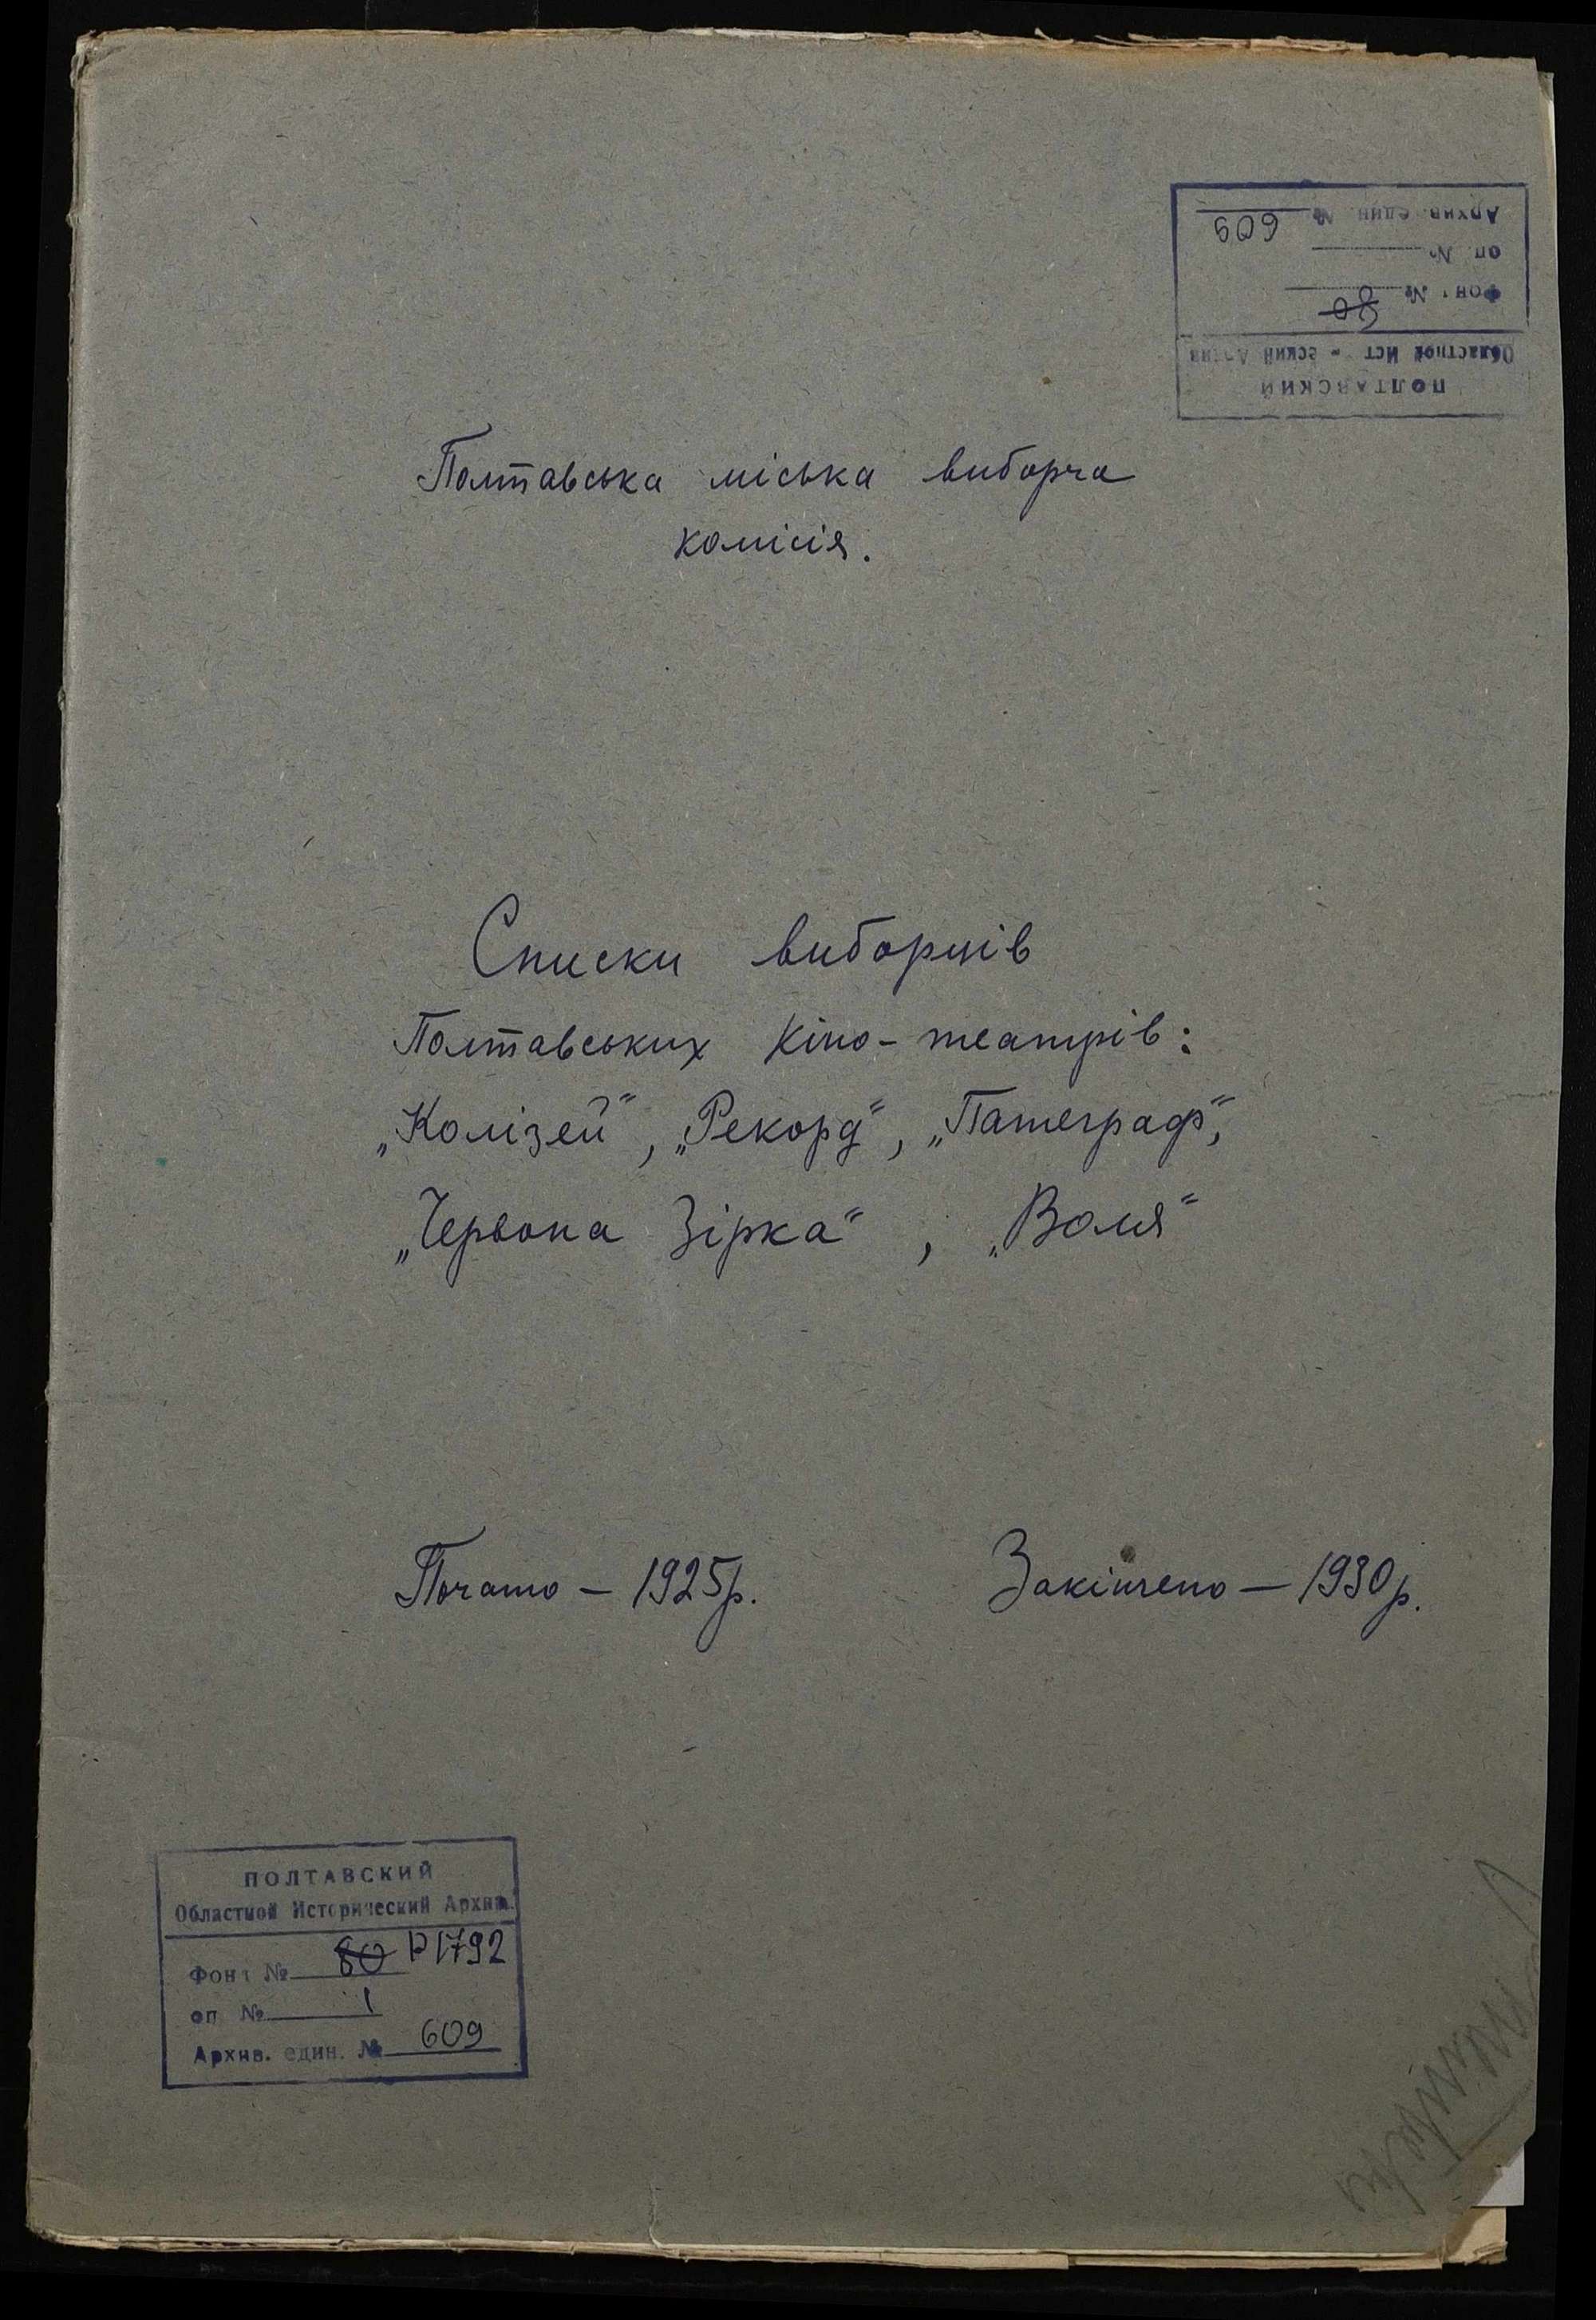 ПОЛТАВСКИЙ
Областной Ист еский Архив
Фонд № 80
оп №
Архив. един. № 609
Полтавська міська виборча
комісія.
Списки виборців
Полтавських Кіно-театрів:
„Колізей“, „Рекорд“, „Патеграф“,
„Червона Зірка“, „Воля“
Почато — 1925р. Закінчено — 1930р.
ПОЛТАВСКИЙ
Областной Исторический Архив
Фонд № 80 Р1792
оп № 1
Архив. един. № 609